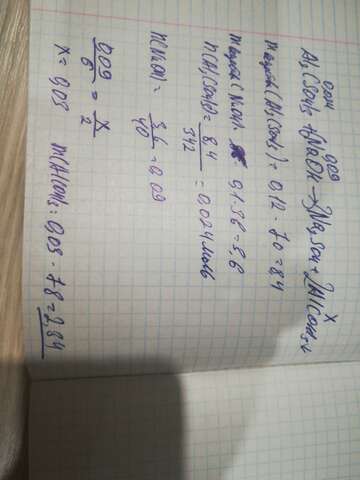 0,024 0,09 x
Al₂(SO₄)₃ + 6NaOH → 3Na₂SO₄ + 2Al(OH)₃↓
(Al₂(SO₄)₃) = 0,12 · 70 = 8,4
(NaOH) 0,1 · 36 = 3,6
n(Al₂(SO₄)₃) = 8,4/342 = 0,024 моль
n(NaOH) = 3,6/40 = 0,09
0,09/6 = x/2
x = 0,03 m(Al(OH)₃ = 0,03 · 78 = 2,84